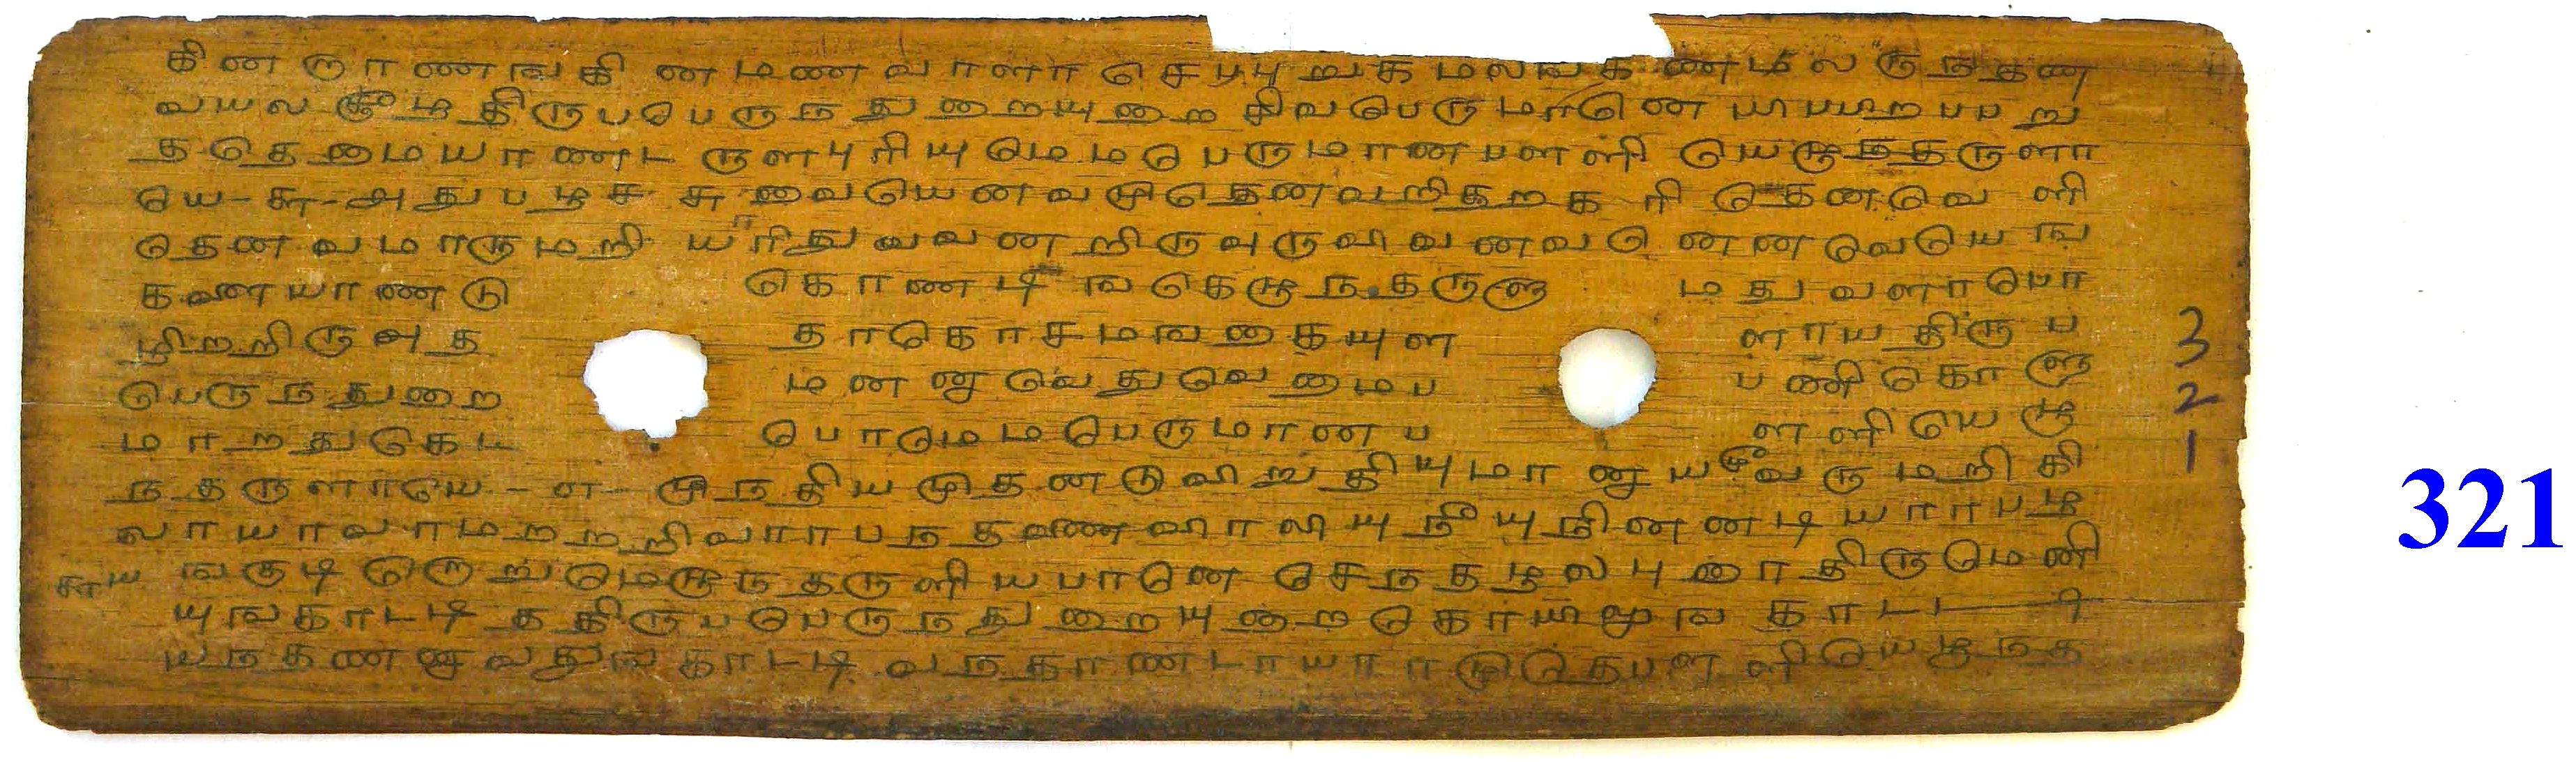 கினறாணஙகி னமணவாளா செபபுறுகமலஙகணமலருநதண
வயலசூழதிருபபெருநதுறையுறை சிவபெருமானெ யிபபிறபபறு
ததெமையாணடருளபுரியுமெமபெருமானபளளி யெழுநதருளா
யெ-சு-அதுபழச சுவையெனவமுதெனவறிதறக ரி தெனவெ ளி
தெனவமரருமறி யாரிதுவவனறிருவுருவிவனவனெனவெயெங
களையாணடு கொணடிஙகெழுநதருளு மதுவளரபொ
ழிறறிருஉத தரகொசமஙகையுள ளாயதிருப
பெருநதுறை மனனாவெதுவெமைப பணிகொளு
மாறதுகெட பொமெமபெருமானப ளளியெழு
நதருளாயெ-எ-முநதியமுதனடுவிறுதியுமா னாயமூவருமறிகி
லாயாவரமறறறிவாரபநதணைவிரலியுநீயுநினனடியாரபழ
ஙகுடிறொறுமெழுநதருளியபரனெ செநதழலபுரைதிருமெனி
யுஙகாடடி ததிருபபெருநதுறையுறைகொயிலுங காடடி
யநதணனாவதுஙகாடடி வநதாணடாயாரமுதெபளளியெழுநத
3
2
1
321